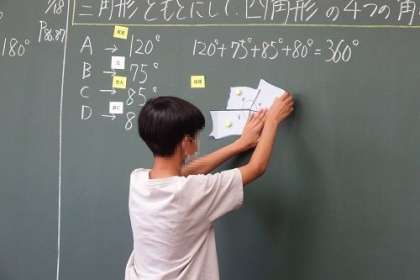 三角形をもとにして、四角形の4つの角の
180°
A → 120°
120°+75°+85°+80°=360°
B → 75°
C → 85°
D → 8